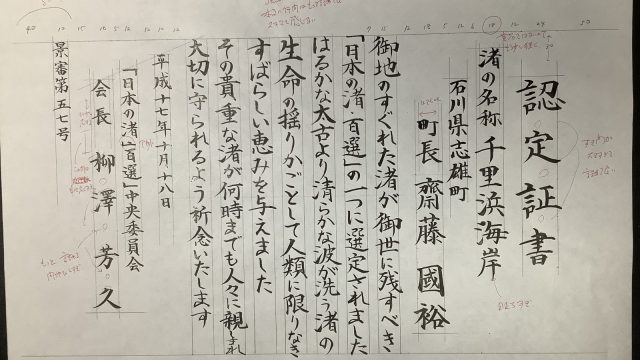 認定証書
渚の名称 千里浜海岸
石川県志雄町
町長 齋藤國裕
御地のすぐれた渚が御世に残すべき
「日本の渚・百選」の一つに選定されました
はるかな太古より清らかな波が洗う渚の
生命の揺りかごとして人類に限りなき
すばらしい恵みを与えました
その貴重な渚が何時までも人々に親しまれ
大切に守られるよう祈念いたします
平成十七年十月十八日
「日本の渚・百選」中央委員会
会長 柳澤芳久
景審第五七号